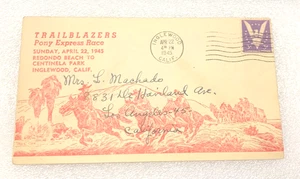 TRAILBLAZERS
Pony Express Race
SUNDAY, APRIL 22, 1945
REDONDO BEACH TO
CENTINELA PARK,
INGLEWOOD, CALIF.
INGLEWOOD
APR 22
1945
CALIF.
Mrs. L. Machado
831 W. Haviland Ave.
Los Angeles-45-
California